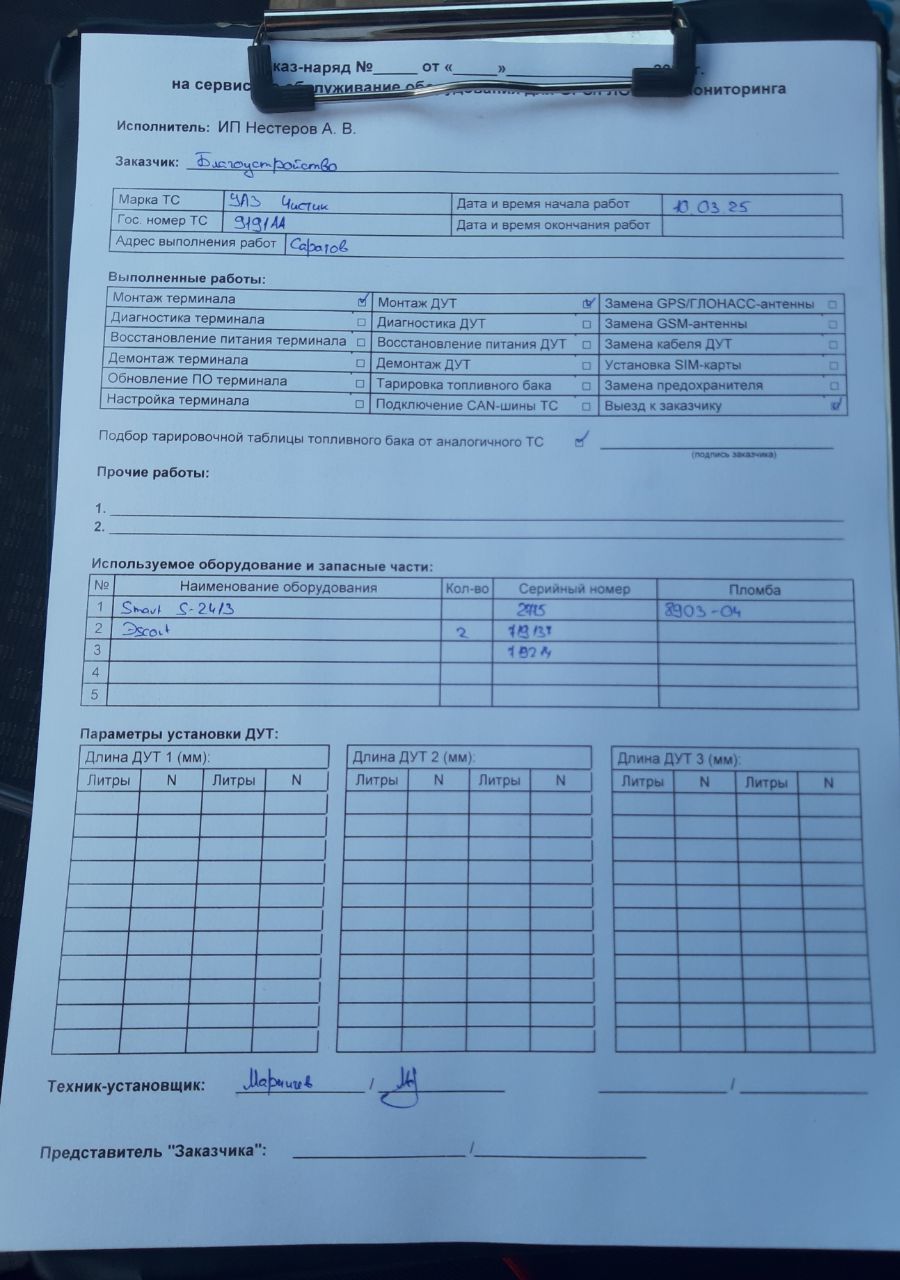 каз-наряд №_____ от «_____»
на сервис обслуживание оборудования для ониторинга
Исполнитель: ИП Нестеров А. В.
Заказчик: Благоустройство
Марка ТС УАЗ Чистик Дата и время начала работ 10.03.25
Гос. номер ТС Дата и время окончания работ
Адрес выполнения работ Саратов
Выполненные работы:
Монтаж терминала ☑ Монтаж ДУТ ☑ Замена GPS/ГЛОНАСС-антенны □
Диагностика терминала □ Диагностика ДУТ □ Замена GSM-антенны □
Восстановление питания терминала □ Восстановление питания ДУТ □ Замена кабеля ДУТ □
Демонтаж терминала □ Демонтаж ДУТ □ Установка SIM-карты □
Обновление ПО терминала □ Тарировка топливного бака □ Замена предохранителя □
Настройка терминала □ Подключение CAN-шины ТС □ Выезд к заказчику ☑
Подбор тарировочной таблицы топливного бака от аналогичного ТС ☑
(подпись заказчика)
Прочие работы:
1.
2.
Используемое оборудование и запасные части:
№ Наименование оборудования Кол-во Серийный номер Пломба
1 Smart S-2413 8903-04
2 Эscort 2
3
4
5
Параметры установки ДУТ:
Длина ДУТ 1 (мм): Длина ДУТ 2 (мм): Длина ДУТ 3 (мм):
Литры N Литры N Литры N Литры N Литры N Литры N
Техник-установщик: / /
Представитель "Заказчика": /